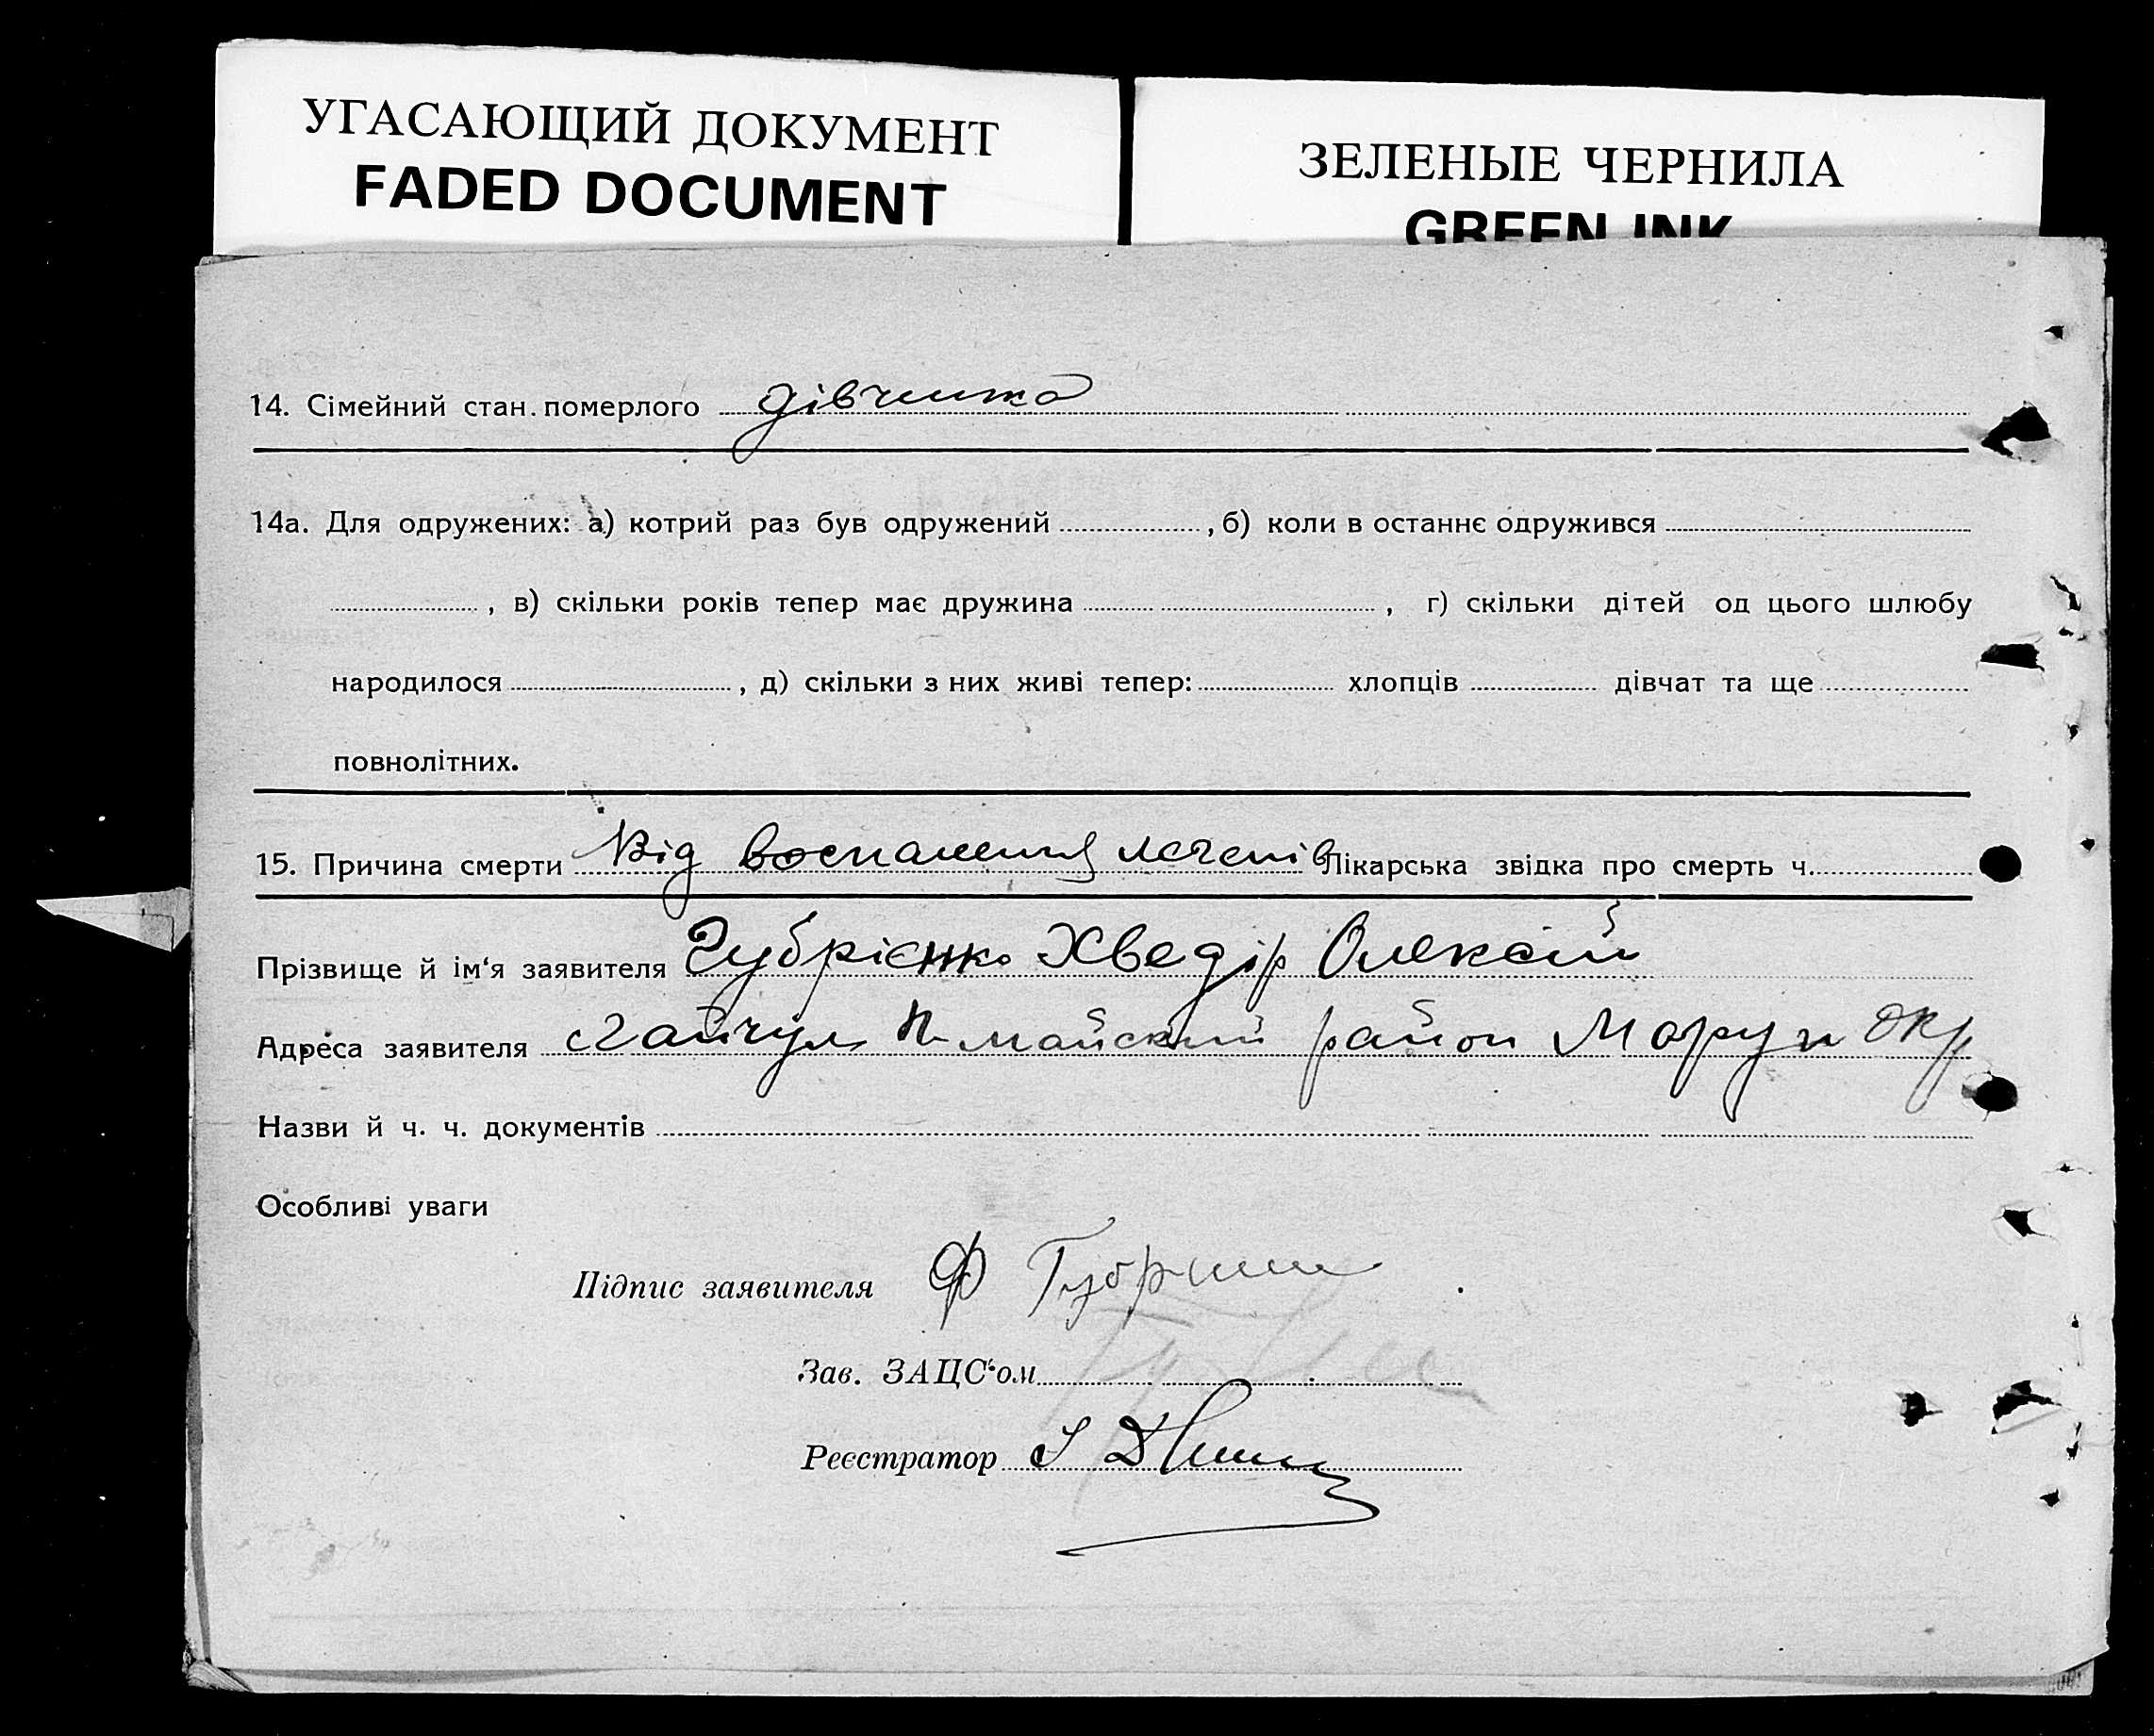 УГАСАЮЩИЙ ДОКУМЕНТ
FADED DOCUMENT
ЗЕЛЕНЫЕ ЧЕРНИЛА
GREEN INK
14. Сімейний стан померлого дівчинка
14а. Для одружених: а) котрий раз був одружений , б) коли в останнє одружився
, в) скільки років тепер має дружина , г) скільки дітей од цього шлюбу
народилося , д) скільки з них живі тепер: хлопців дівчат та ще
повнолітних.
15. Причина смерти Від воспаления легенів Лікарська звідка про смерть ч.
Прізвище й ім'я заявителя Губрієнко Хведір Олексій
Адреса заявителя Гайчул П-майский район Маруп окр
Назви й ч. ч. документів
Особливі уваги
Підпис заявителя Ф Губрієн
Зав. ЗАЦС'ом
Реєстратор